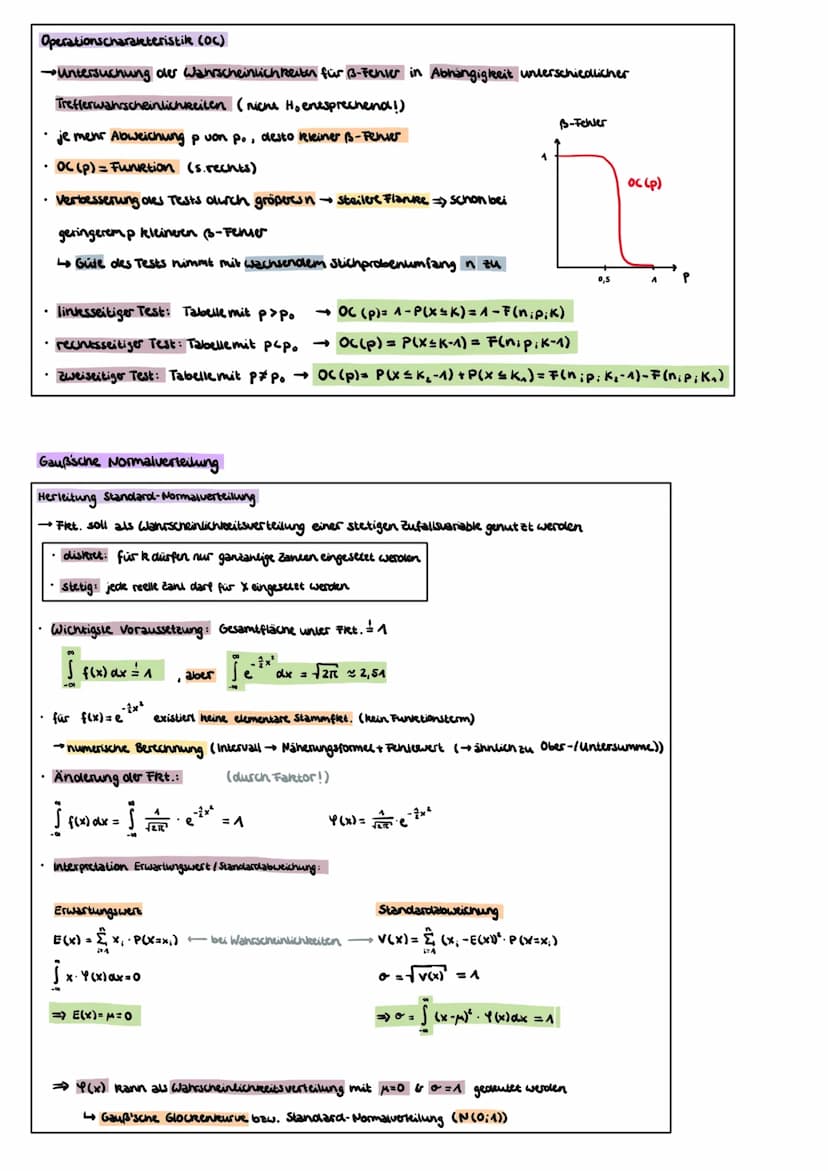 Operationscharakteristik (OC)
→ Untersuchung der Wahrscheinlichkeiten für β-Fehler in Abhängigkeit unterschiedlicher
Trefferwahrscheinlichkeiten (nicht H₀ entsprechend!)
· je mehr Abweichung p von p₀, desto kleiner β-Fehler
· OC(p) = Funktion (s. rechts)
· Verbesserung des Tests durch größeres n → steilere Flanke ⇒ schon bei
geringerem p kleineren β-Fehler
↳ Güte des Tests nimmt mit wachsendem Stichprobenumfang n zu
β-Fehler
1
OC(p)
0,5
1
p
· linksseitiger Test: Tabelle mit p>p₀ → OC(p)= 1-P(X≤K)=1-F(n;p;K)
· rechtsseitiger Test: Tabelle mit p<p₀ → OC(p) = P(X≤K-1) = F(n;p;K-1)
· zweiseitiger Test: Tabelle mit p≠p₀ → OC(p)= P(X≤K₂-1)+P(X≤K₁)=F(n;p;K₂-1)-F(n;p;K₁)
Gauß'sche Normalverteilung
Herleitung Standard-Normalverteilung
→ Fkt. soll als Wahrscheinlichkeitsverteilung einer stetigen Zufallsvariable genutzt werden
· diskret: für k dürfen nur ganzahlige Zahlen eingesetzt werden
· stetig: jede reelle Zahl darf für X eingesetzt werden
· Wichtigste Voraussetzung: Gesamtfläche unter Fkt. =! 1
∫_{-∞}^{∞} f(x) dx =! 1 , aber ∫_{-∞}^{∞} e^{-½x²} dx = √2π ≈ 2,51
· für f(x)=e^{-½x²} existiert keine elementare Stammfkt. (kein Funktionsterm)
→ numerische Berechnung (Intervall → Näherungsformel + Fehlerwert (→ ähnlich zu Ober-/Untersumme))
· Änderung der Fkt.: (durch Faktor!)
∫_{-∞}^{∞} f(x) dx = ∫_{-∞}^{∞} 1/√2π · e^{-½x²} = 1 φ(x) = 1/√2π · e^{-½x²}
· Interpretation Erwartungswert/Standardabweichung:
Erwartungswert Standardabweichung
E(x) = Σ_{i=1}^{n} x_i · P(X=x_i) ← bei Wahrscheinlichkeiten → V(x) = Σ_{i=1}^{n} (x_i-E(x))² · P(X=x_i)
∫_{-∞}^{∞} x·φ(x)dx=0 σ = √V(x) = 1
⇒ E(x)=μ=0 ⇒ σ = ∫_{-∞}^{∞} (x-μ)² · φ(x)dx = 1
⇒ φ(x) kann als Wahrscheinlichkeitsverteilung mit μ=0 & σ=1 gedeutet werden
↳ Gauß'sche Glockenkurve bzw. Standard-Normalverteilung (N(0;1))